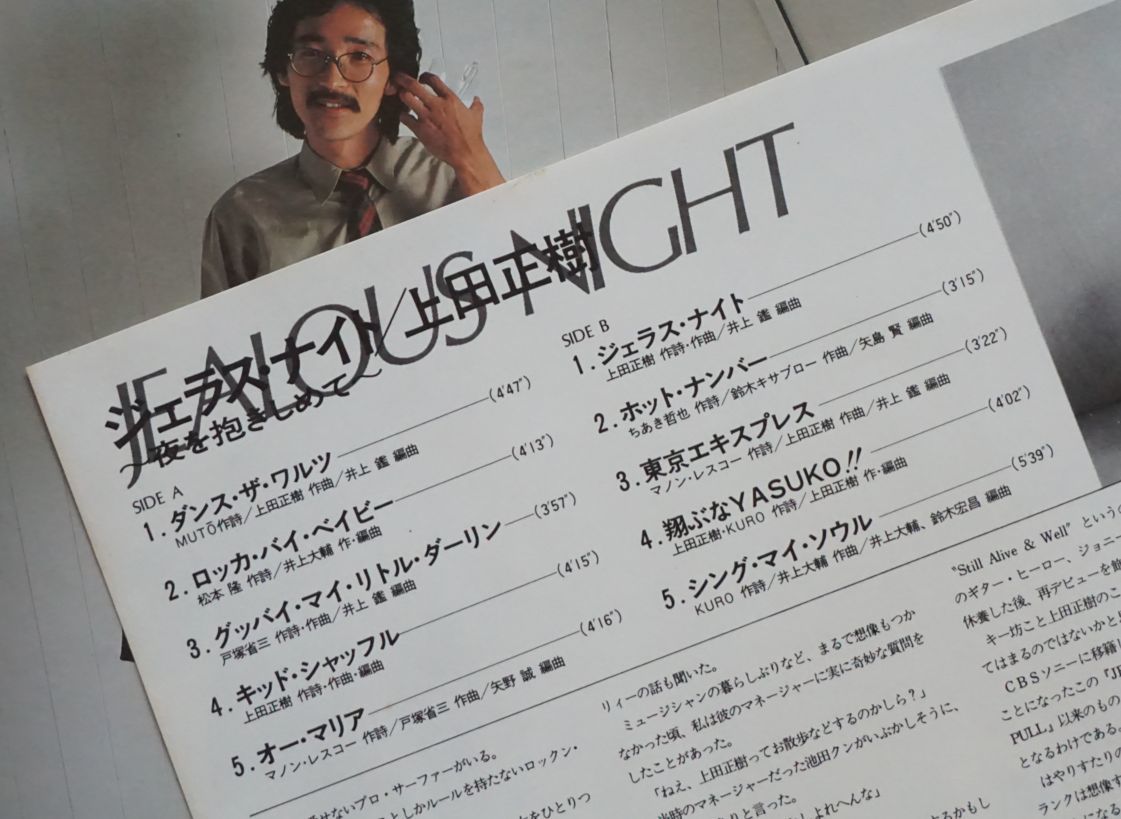 JEALOUS NIGHT
ジェラス・ナイト/上田正樹
〜夜を抱きしめて〜
SIDE A
1.ダンス・ザ・ワルツ (4'47")
MUTŌ作詩/上田正樹 作曲/井上 鑑 編曲
2.ロッカ・バイ・ベイビー (4'13")
松本 隆 作詩/井上大輔 作・編曲
3.グッバイ・マイ・リトル・ダーリン (3'57")
戸塚省三 作詩・作曲/井上 鑑 編曲
4.キッド・シャッフル (4'15")
上田正樹 作詩・作曲・編曲
5.オー・マリア (4'16")
マノン・レスコー 作詩/戸塚省三 作曲/矢野 誠 編曲
SIDE B
1.ジェラス・ナイト (4'50")
上田正樹 作詩・作曲/井上 鑑 編曲
2.ホット・ナンバー (3'15")
ちあき哲也 作詩/鈴木キサブロー 作曲/矢島 賢 編曲
3.東京エキスプレス (3'22")
マノン・レスコー 作詩/上田正樹 作曲/井上 鑑 編曲
4.翔ぶなYASUKO!! (4'02")
上田正樹・KURO 作詩/上田正樹 作・編曲
5.シング・マイ・ソウル (5'39")
KURO 作詩/井上大輔 作曲/井上大輔、鈴木宏昌 編曲
せないプロ・サーファーがいる。
としかルールを持たないロックン・
をひとりつ
リィーの話も聞いた。
ミュージシャンの暮らしぶりなど、まるで想像もつか
なかった頃、私は彼のマネージャーに実に奇妙な質問を
したことがあった。
「ねえ、上田正樹ってお散歩などするのかしら?」
当時のマネージャーだった池田クンがいぶかしそうに、
りと言った。
よれへんな」
るかもし
"Still Alive & Well" というの
のギター・ヒーロー、ジョニー
休養した後、再デビューを飾
キー坊こと上田正樹のこ
てはまるのではないかと
CBSソニーに移籍し
ことになったこの『JE
PULL』以来のもの
となるわけである。
はやりすたりの
ランクは想像す
になる